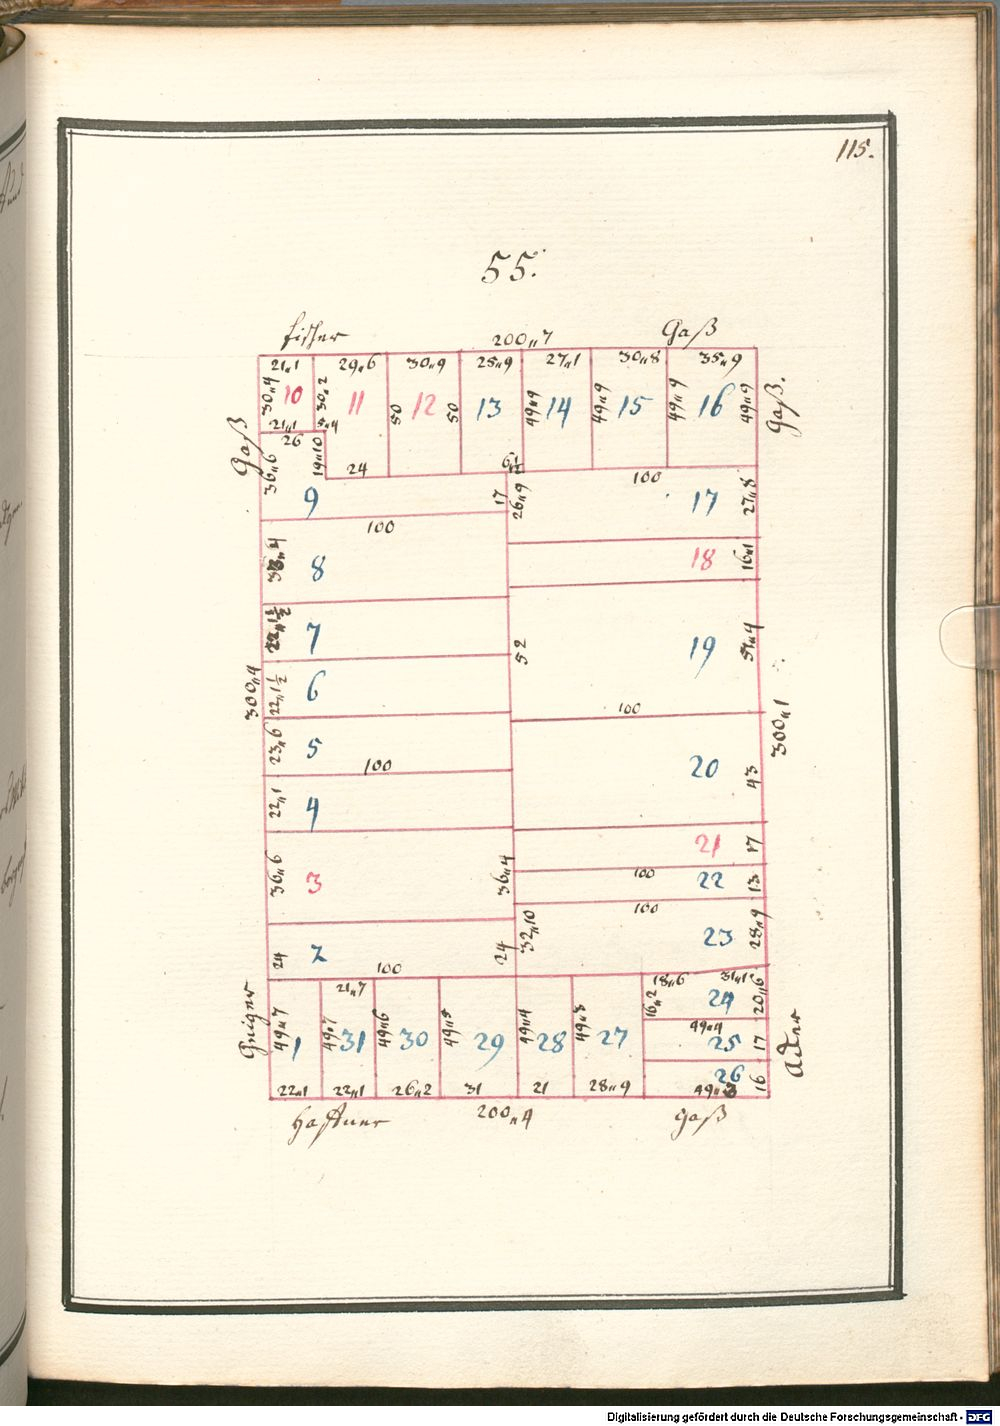 115.
55.
Fischer 200„7 Gaß
21„1 29„6 30„9 25„9 27„1 30„8 35„9
30„4 10 30„2 11 50 12 50 13 49„9 14 49„9 15 49„9 16 49„9
Gaß.
21„1 5„4
Gaß
26 19„10 24 100
36„6 9 17 26„9 17 27„8
100
8 18 16„1
22„1½ 7 52 19
300„4
22„1½ 6
100
300„1
23„6 5
100
20 43
22„1 4
21 17
36„6 3 36„4 100 22 13
100
32„10 23 28„9
24 2 24
100
21„7 18„6
16„2 24 20„6
49„7 1 49„7 31 49„6 30 49„5 29 49„4 28 27
49„4 25 17
Adler
26 16
22„1 22„1 26„2 31 21 28„9
Haffner 200„4 Gaß
Digitalisierung gefördert durch die Deutsche Forschungsgemeinschaft - DFG